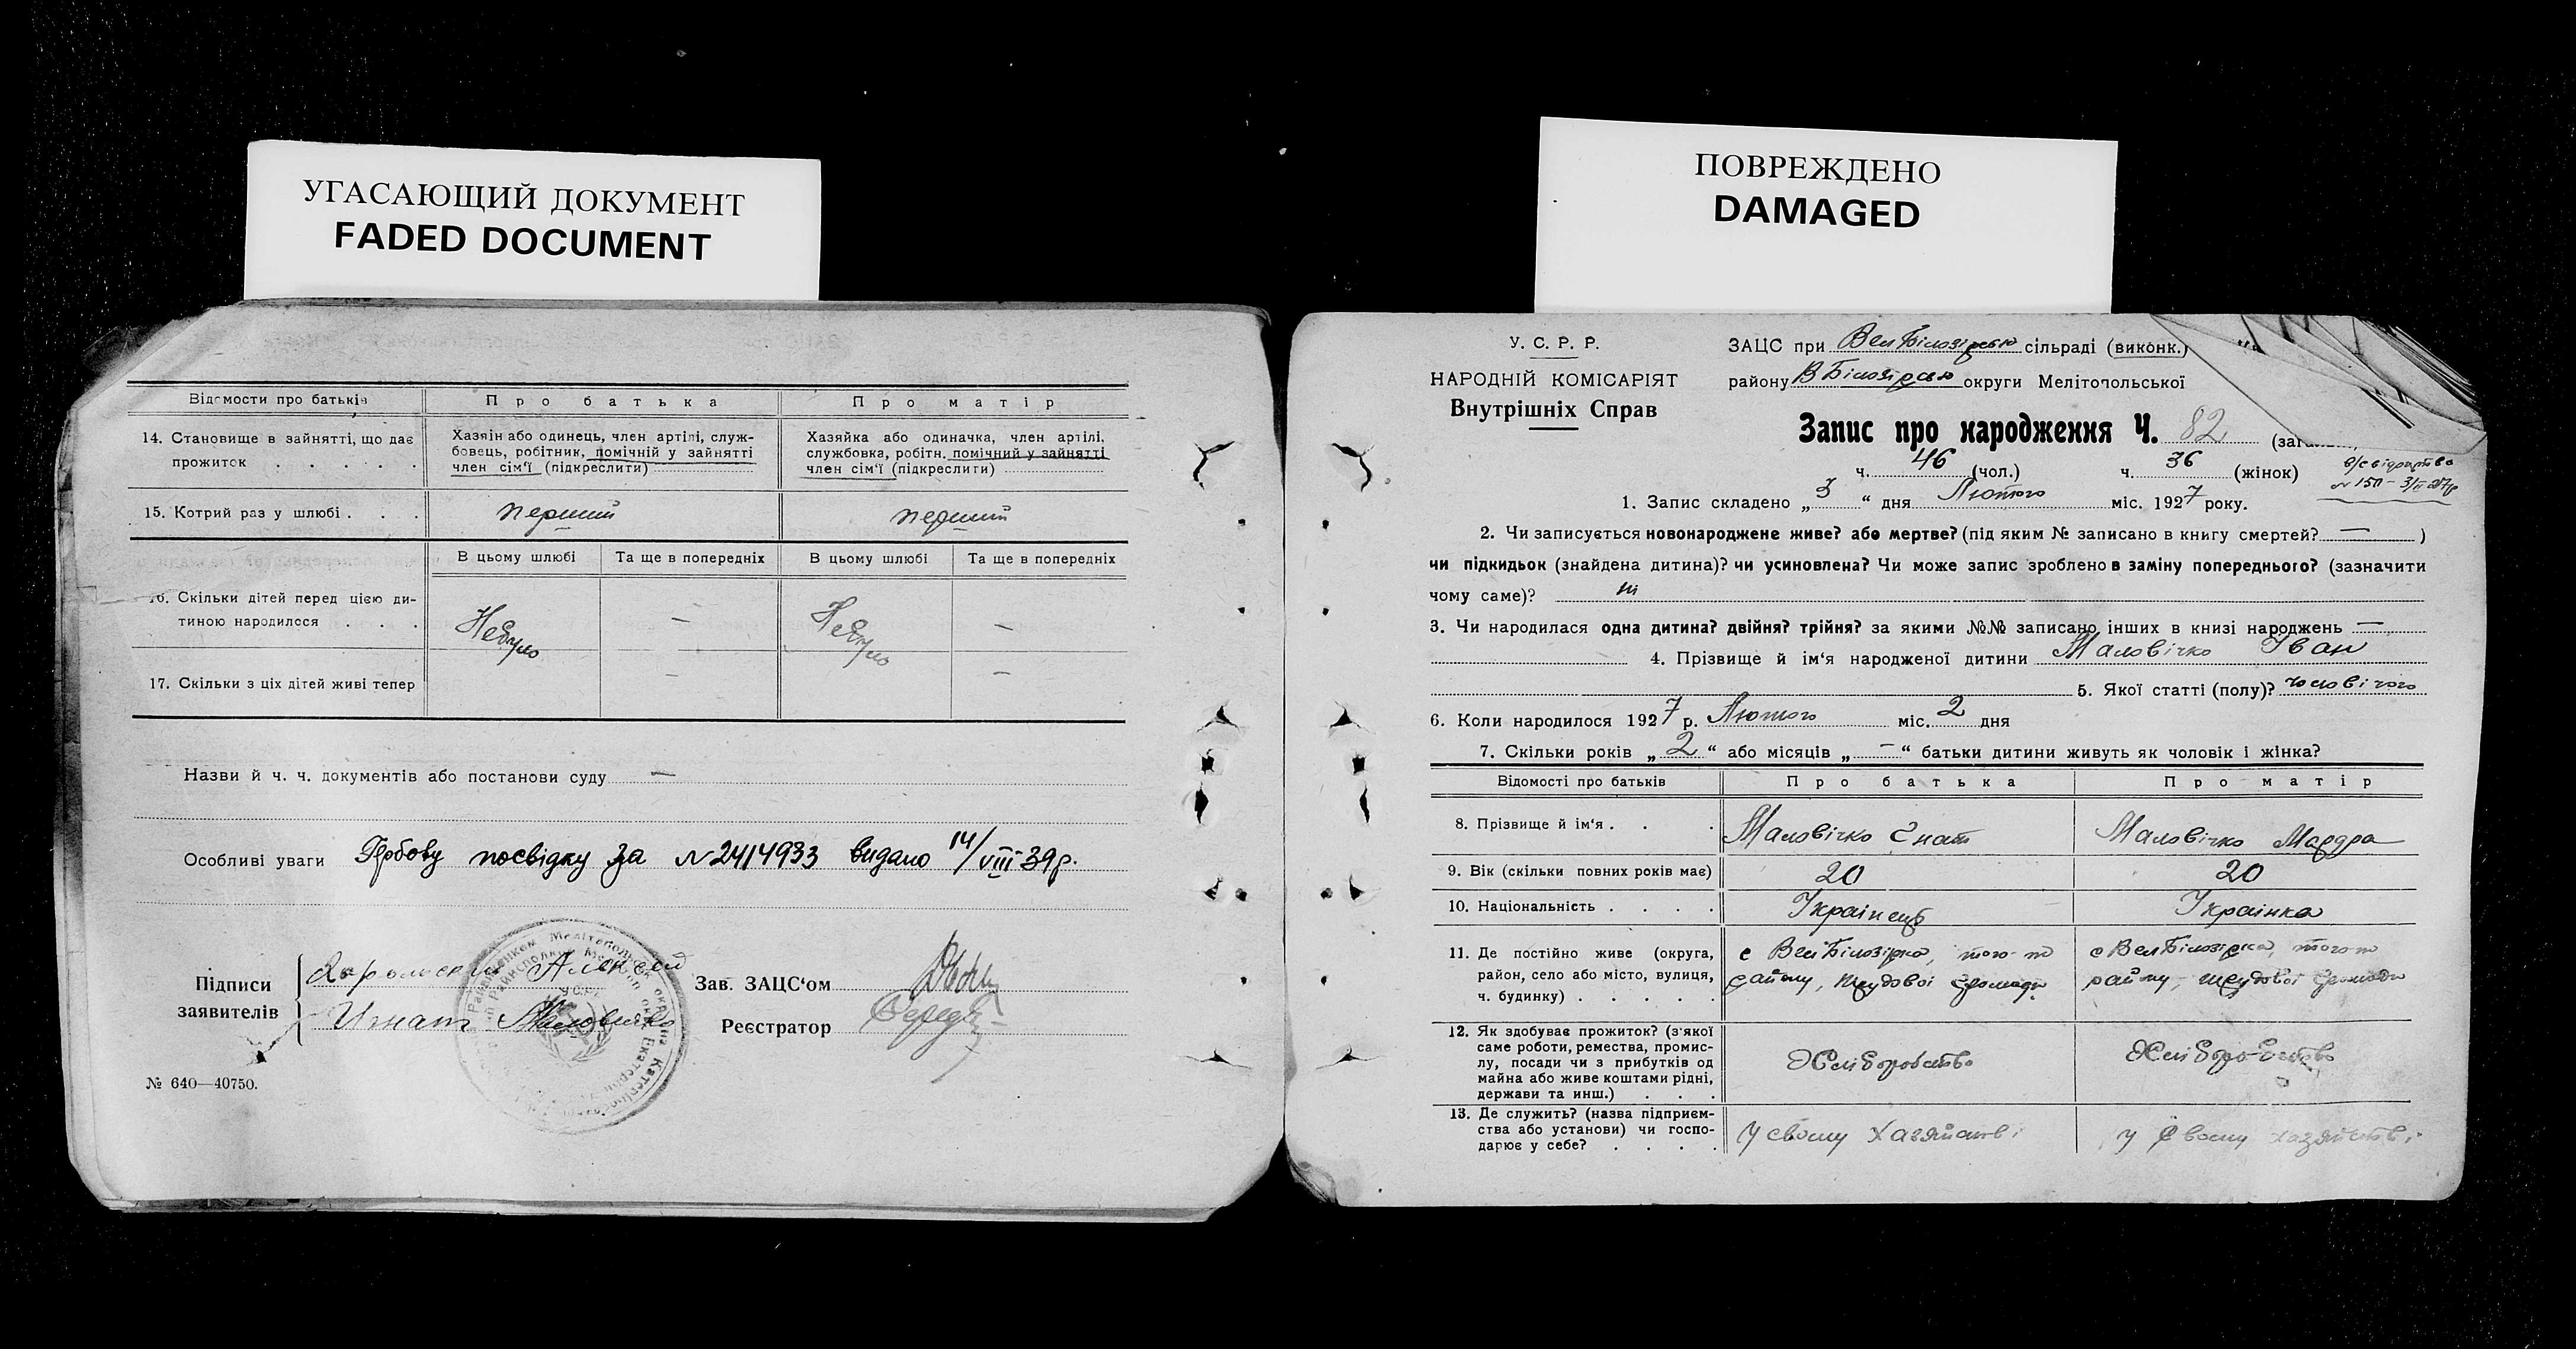 УГАСАЮЩИЙ ДОКУМЕНТ
FADED DOCUMENT
Відомости про батьків
Про батька
Про матір
14. Становище в зайнятті, що дає прожиток . . . . .
Хазяїн або одинець, член артілі, служ-
бовець, робітник, помічній у зайнятті
член сім'ї (підкреслити)
Хазяйка або одиначка, член артілі,
службовка, робітн. помічний у зайнятті
член сім'ї (підкреслити)
15. Котрий раз у шлюбі . . .
перший
перший
В цьому шлюбі
Та ще в попередніх
В цьому шлюбі
Та ще в попередніх
16. Скільки дітей перед цією ди-
тиною народилося . . .
Небуло
—
Небуло
—
17. Скільки з ціх дітей живі тепер
—
—
Назви й ч. ч. документів або постанови суду —
Особливі уваги Гербову посвідку за №2414933 видано 14/VIII 39р.
Підписи
заявителів
Алексей
Игнат Маловичко
Зав. ЗАЦС'ом
Реєстратор
№ 640—40750.
ПОВРЕЖДЕНО
DAMAGED
У. С. Р. Р.
НАРОДНІЙ КОМІСАРІЯТ
Внутрішніх Справ
ЗАЦС при Вел Білозірською сільраді (виконк.)
району В Білозірсью округи Мелітопольської
Запис про народження Ч. 82
ч. 46 (чол.) ч. 36 (жінок)
№ 150 - 3/II 27р
1. Запис складено „ 3 “ дня Лютого міс. 1927 року.
2. Чи записується новонароджене живе? або мертве? (під яким № записано в книгу смертей? — )
чи підкидьок (знайдена дитина)? чи усиновлена? Чи може запис зроблено в заміну попереднього? (зазначити
чому саме)? ні
3. Чи народилася одна дитина? двійня? трійня? за якими №№ записано інших в книзі народжень —
4. Прізвище й ім'я народженої дитини Маловічко Іван
5. Якої статті (полу)? чоловічого
6. Коли народилося 1927 р. Лютого міс. 2 дня
7. Скільки років „ 2 “ або місяців „ — “ батьки дитини живуть як чоловік і жінка?
Відомості про батьків
Про батька
Про матір
8. Прізвище й ім'я . . .
Маловічко Гнат
Маловічко Мардра
9. Вік (скільки повних років має)
20
20
10. Національність . . . .
Українець
Українка
11. Де постійно живе (округа,
район, село або місто, вулиця,
ч. будинку) . . . . .
с Вел Білозірка, того-ж
району, трудової громади
с Вел Білозірка, того-ж
району, трудової громади
12. Як здобуває прожиток? (з'якої
саме роботи, ремества, промис-
лу, посади чи з прибутків од
майна або живе коштами рідні,
держави та инш.) . . .
Хліборобство
Хліборобство
13. Де служить? (назва підприєм-
ства або установи) чи госпо-
дарює у себе? . . . .
у своему хазяйстві
у своему хазяйстві